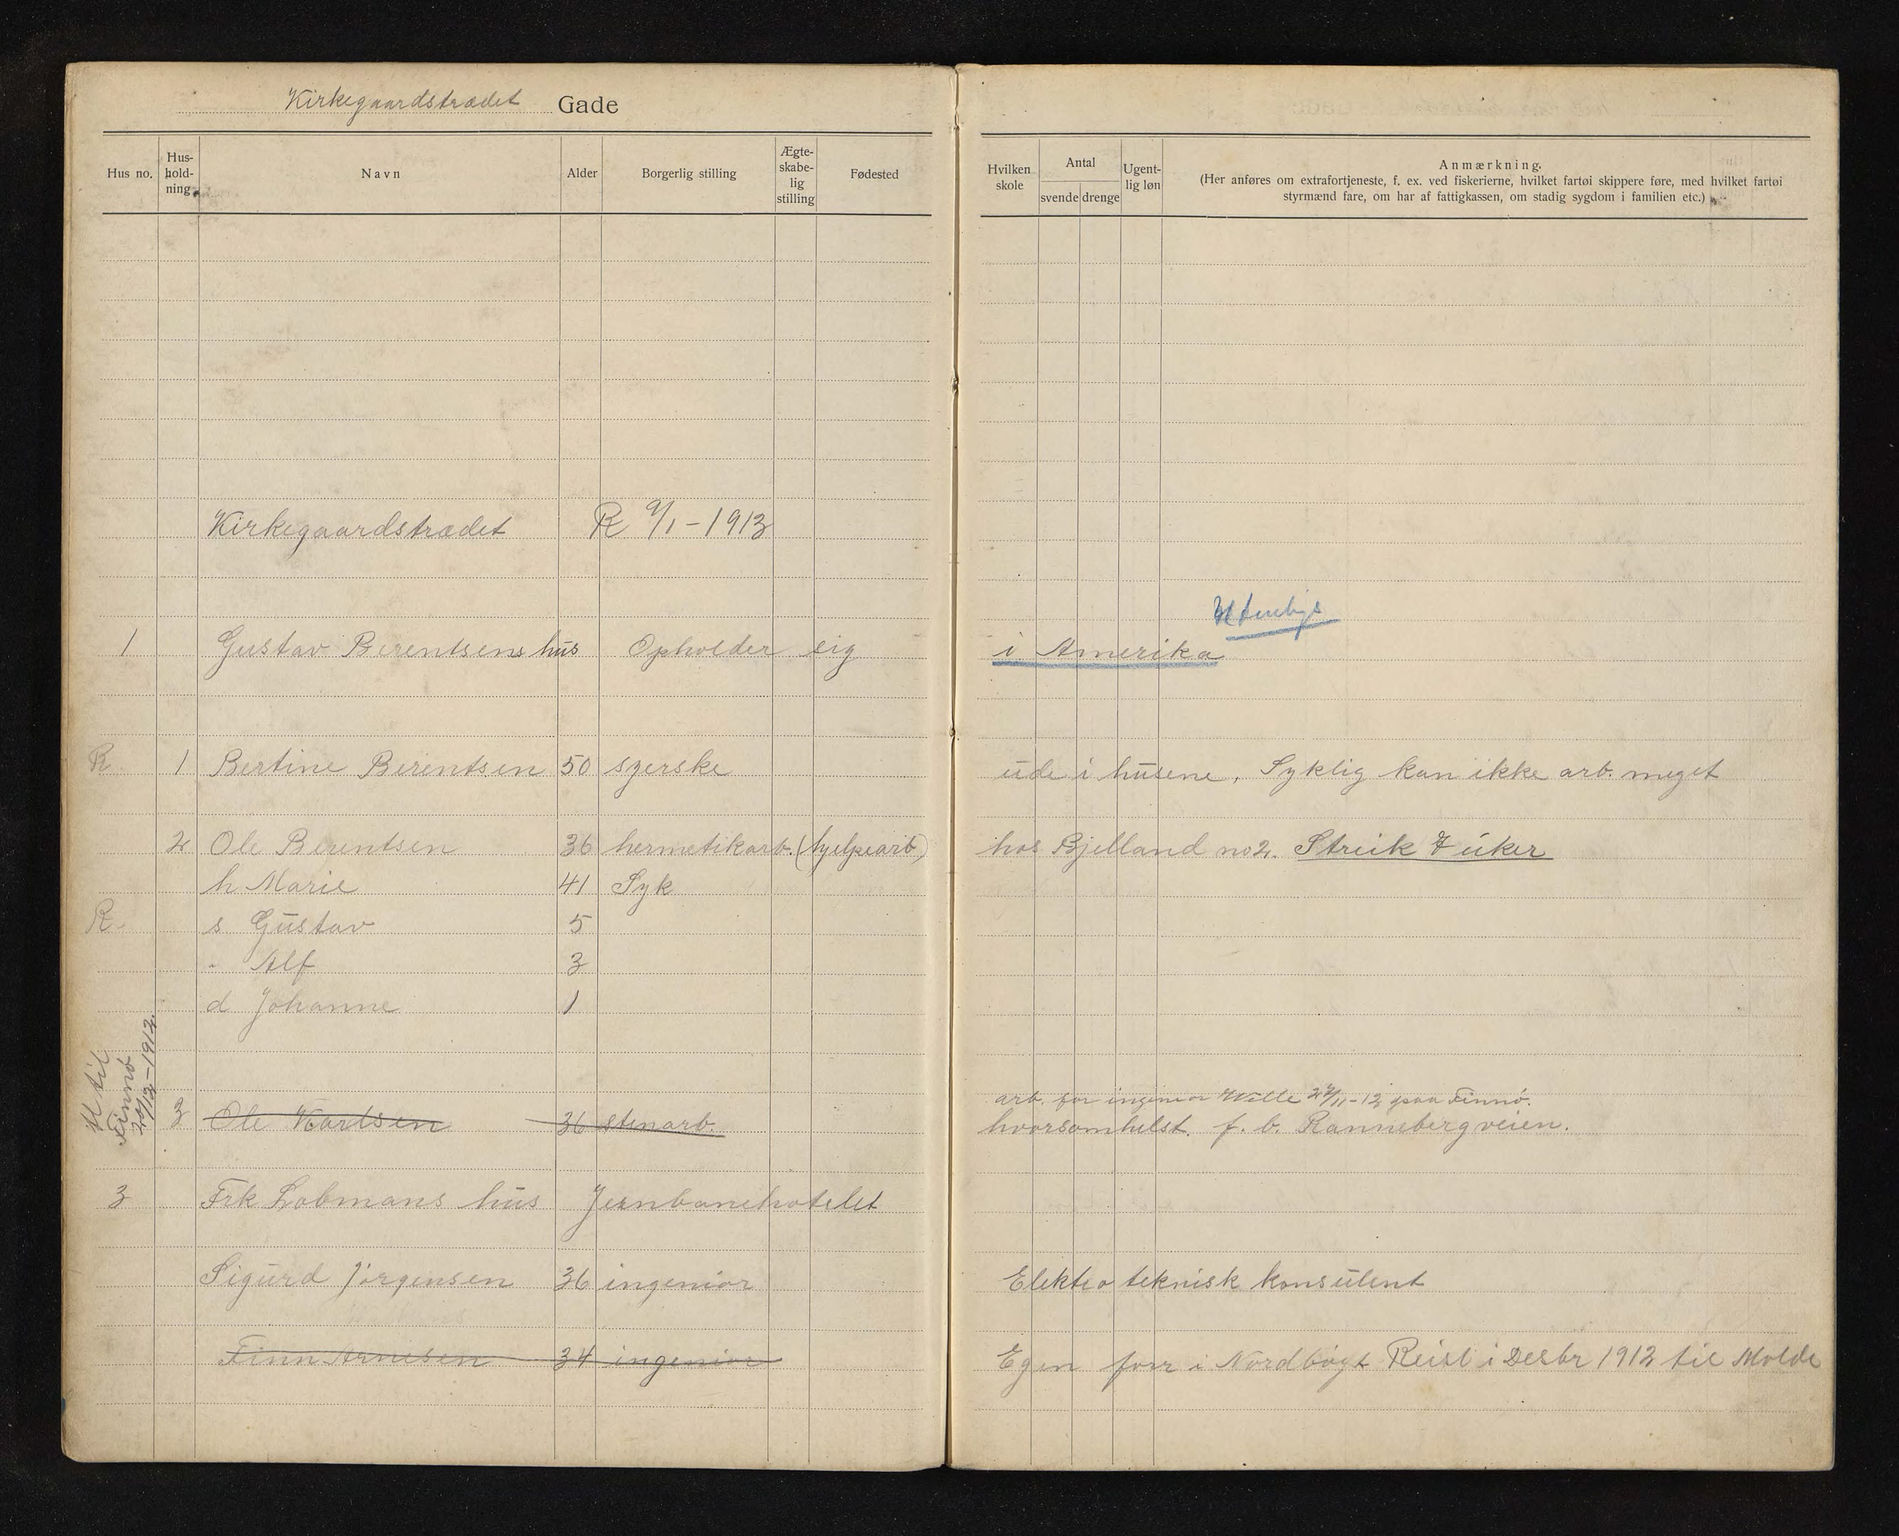 Kirkegaardstrædet Gade
Hus no. Hus-hold-ning Navn Alder Borgerlig stilling Ægte-skabe-lig stilling Fødested
Hvilken skole Antal svende drenge Ugent-lig løn Anmærkning.
(Her anføres om extrafortjeneste, f. ex. ved fiskerierne, hvilket fartøi skippere føre, med hvilket fartøi
styrmænd fare, om har af fattigkassen, om stadig sygdom i familien etc.)
Kirkegaardstrædet R 9/1 - 1913
1 Gustav Berentsens hus Opholder sig i Amerika
R 1 Bertine Berentsen 50 syerske ude i husene, Syklig kan ikke arb. meget
2 Ole Berentsen 36 hermetikarb. (hjelpearb) hos Bjelland no 2. Streik 7 uker
h Marie 41 Syk
R. s Gustav 5
" Alf 3
d Johanne 1
Ut til
Finnø
12-1912.
arb. for ingeniør 11-12 paa Finnø.
3 Ole Karlsen 36 stenarb. hvorsomhelst. f. b. Rannebergveien.
3 Frk Lobmans hus Jernbanehotelet
Sigurd Jørgensen 36 ingeniør Elektroteknisk konsulent
Finn Arnesen 34 ingeniør Egen forr i Nordbøgt Reist i Desbr 1912 til Molde